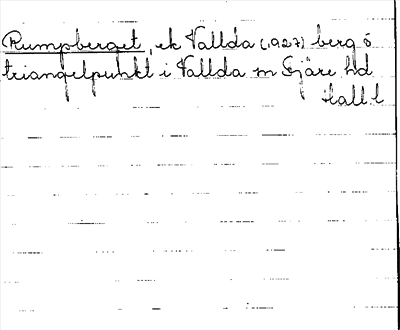 Rumpberget, ek Vallda (1927) berg o
triangelpunkt i Vallda sn Fjäre hd
Hall. l